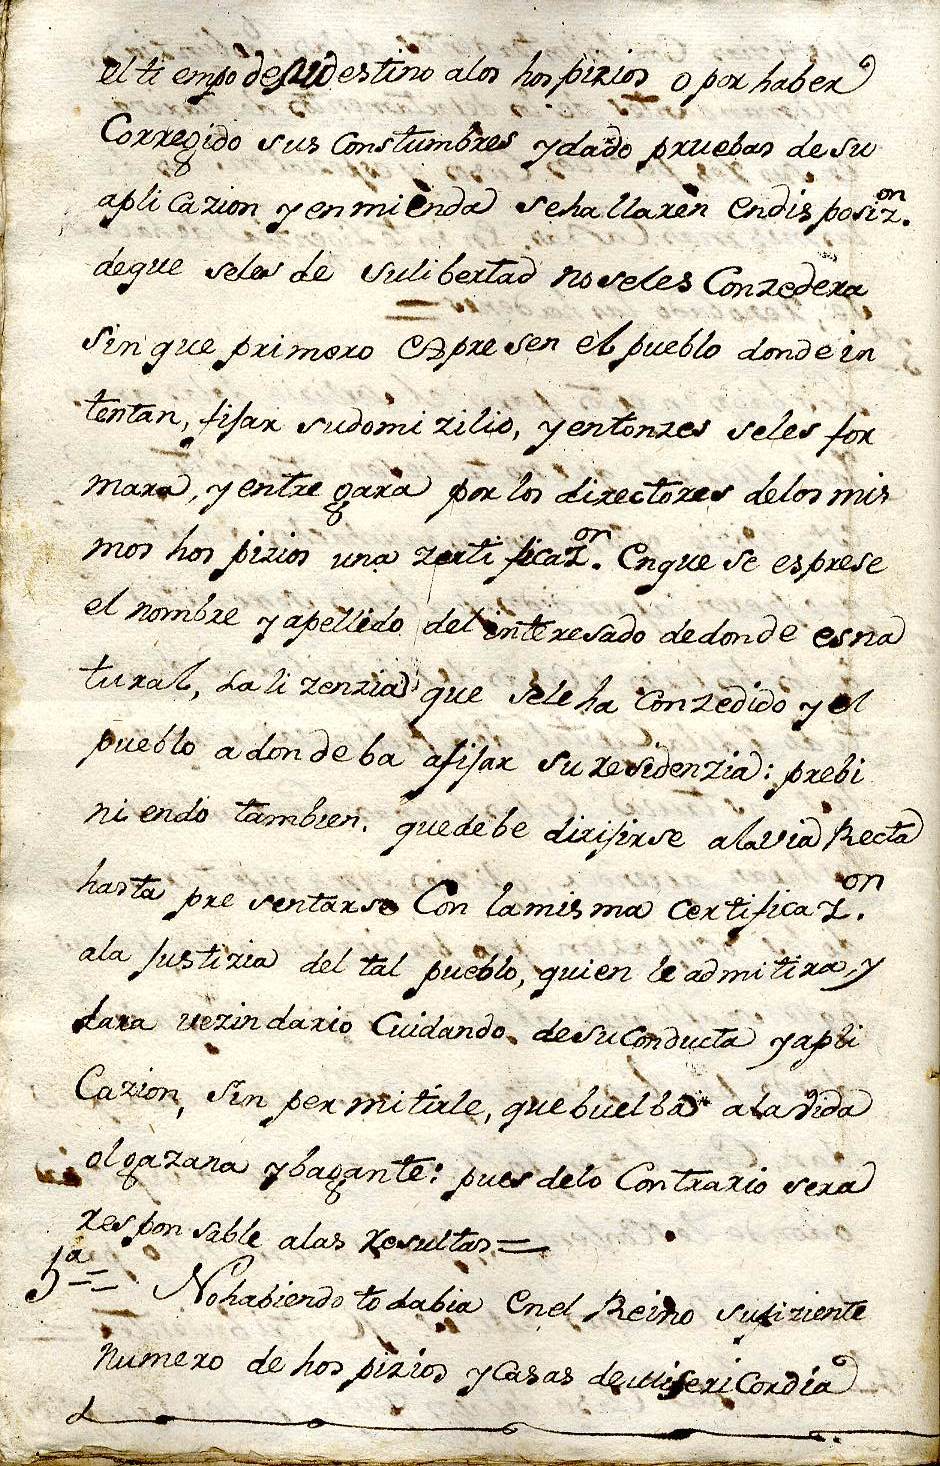 el ti empo de su destino alos hospizios o por haber
Corregido sus Constumbres y dado pruebas de su
apli cazion y en mienda sehallaren en dis posiz.on
deque seles de su libertad no seles Conzedera
sin que primero Expresen el pueblo donde in
tentan, fijar sudomi zilio, y entonzes seles for
mara, y entre gara por los directores delos mis
mos hos pizios una zerti ficaz.on Enque se esprese
el nombre y apellido del interesado de donde es na
tural, La li zenzia que sele ha Conzedido y el
pueblo a don de ba afijar su residenzia: prebi
ni endo tambien. quedebe dirijirse ala via Recta
hasta pre sentarse Con lamisma Certificaz.on
ala Justizia del tal pueblo, quien le admitira, y
dara vezin dario Cuidando de su Conducta y apli
Cazion, sin per mitirle, que buelba a la vida
olgazana y bagante: pues delo Contrario sera
res pon sable alas Resultas=
5a= No habiendo to dabia en el Reino sufiziente
Numero de hos pizios y Casas de Miseri Cordia